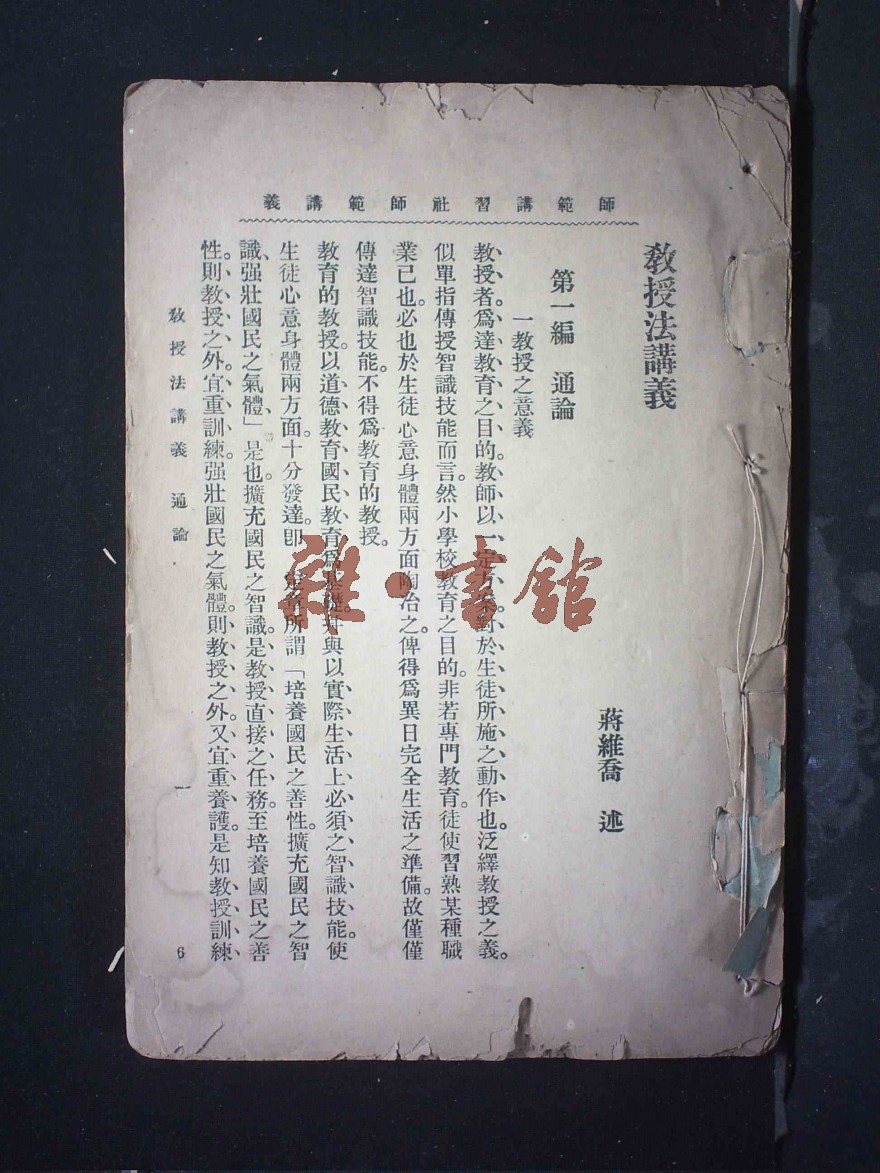 師範講習社師範講義
教授法講義
蔣維喬 述
第一編 通論
一教授之意義
教授者。爲達教育之目的。教師以一定方案。對於生徒所施之動作也。泛繹教授之義。
似單指傳授智識技能而言。然小學校教育之目的。非若專門教育。徒使習熟某種職
業已也。必也於生徒心意身體兩方面陶冶之。俾得爲異日完全生活之準備。故僅僅
傳達智識技能。不得爲教育的教授。
教育的教授。以道德教育國民教育爲基礎。并與以實際生活上必須之智識技能。使
生徒心意身體兩方面。十分發達。卽 定章所謂「培養國民之善性。擴充國民之智
識、强壯國民之氣體」是也。擴充國民之智識。是教授直接之任務。至培養國民之善
性。則教授之外。宜重訓練。强壯國民之氣體。則教授之外。又宜重養護。是知教授訓練
教授法講義 通論
一
6
雜·書館